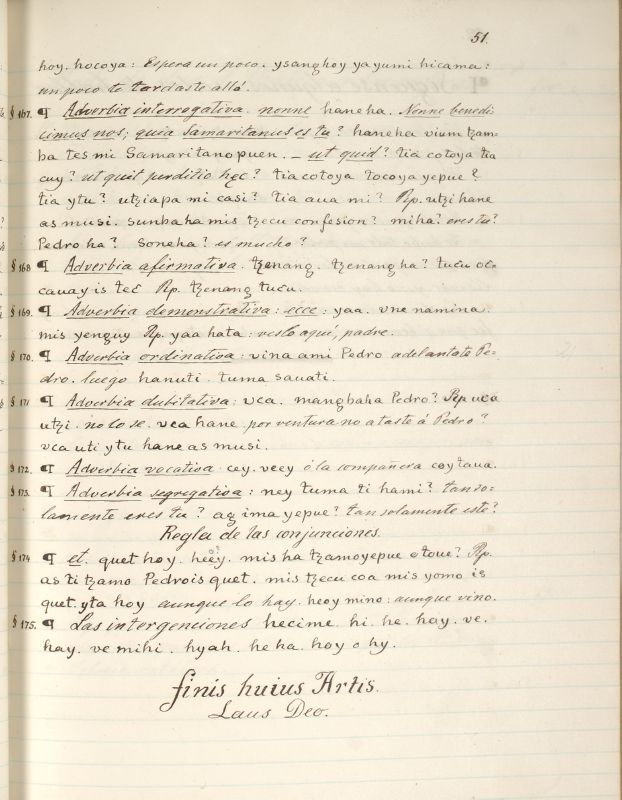 51.
hoy. hocoya: Espera un poco. ysanghoy yayumi hicama:
un poco te tardaste allá.
§ 167. ¶ Adverbia interrogativa. nonne haneha. Nonne benedi:
cimus nos; quia Samaritanus es tu? haneha vium tzam:
ba tes mi Samaritanopuen. _ ut quid? tia cotoya tia
cuy? ut quit perditio hęc? tia cotoya tocoya yepue?
tia ytu? utziapa mi casi? tia aua mi? Rp. utzi hane
as musi. sunbaha mis tzecu confesion? miha? eres tu?
Pedro ha? soneha? es mucho?
§ 168 ¶ Adverbia afirmativa. tzenang. tzenangha? tucu oc=
cauay is tec Rp. tzenang tucu.
§ 169. ¶ Adverbia demonstrativa: ecce: yaa. vne namina.
mis yenguy Rp. yaa hata: veslo aquí, padre.
§ 170. ¶ Adverbia ordinativa: vina ami Pedro adelantate Pe=
dro. luego hanuti. tuma sauati.
§ 171 ¶ Adverbia dubitativa: vca. mangbaha Pedro? Rp uca
utzi. no lo se. vca hane. por ventura no ataste á Pedro?
vca uti ytu hane as musi.
§ 172. ¶ Adverbia vocativa. cey. vecy ó la compañera coytaua.
§ 173. ¶ Adverbia segregativa: ney tuma ti hami? tan so=
lamente eres tu? aę ima yepue? tan solamente este?
Regla de las conjunciones.
§ 174 ¶ et. quet hoy. heęy. mis ha tzamoyepue otoue? Rp.
as ti tzamo Pedrois quet. mis tzecu coa mis yomo is
quet. yta hoy aunque lo hay. heoy mino: aunque vino.
§ 175. ¶ Las intergenciones hecime. hi. he. hay. ve.
hay. ve mihi. hyah. he ha. hoy o hy.
finis huius Artis.
Laus Deo.